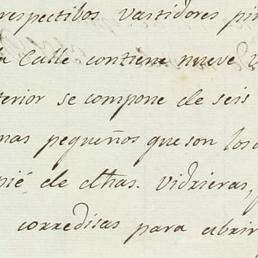 respectibos vastidores pin
Calle contiene nueve v
terior se compone de seis
mas pequeños que son los
pié de dhas. vidrieras,
corredisas para abrir